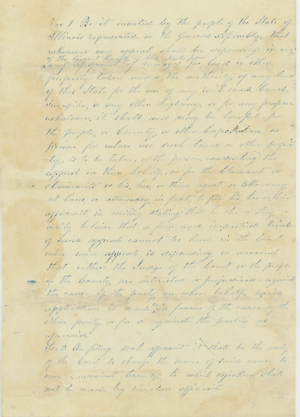 Sec. 1 Be it enacted by the people of the State of
Illinois represented in the General Assembly, That
whenever any appeal shall be depending in any
of the Circuit Courts of this State
land or other
property taken under the authority of any law
of this State for the use of any rail road, canal,
turnpike, or any other highway, or for any purpose
whatever, it shall and may be lawful for
the people, or County, or other Corporation or
person for whose use such land or other proper
ty, is to be taken, or the person, conducting the
appeal on their behalf, or for the claimant or
claimants or his, her, or their agent or attorney
at law or attorney in fact, to file his her or their
affidavit in writing stating that he she or they
verily believe that a fair and impartial trial
of said appeal cannot be had in the Court
where such appeal is depending on account
that either the Judge of the Court or the people
of the County are interested or prejudiced against
the cause of the party on whose behalf such
application is made, in favour of the cause of the
other party, or for or against the parties as
aforesaid
Sec. 2 On filing such affidavit it shall be the duty
of the Court to change the venue of said cause to
any convenient County, to which objections shall
not be made by similar affidavit